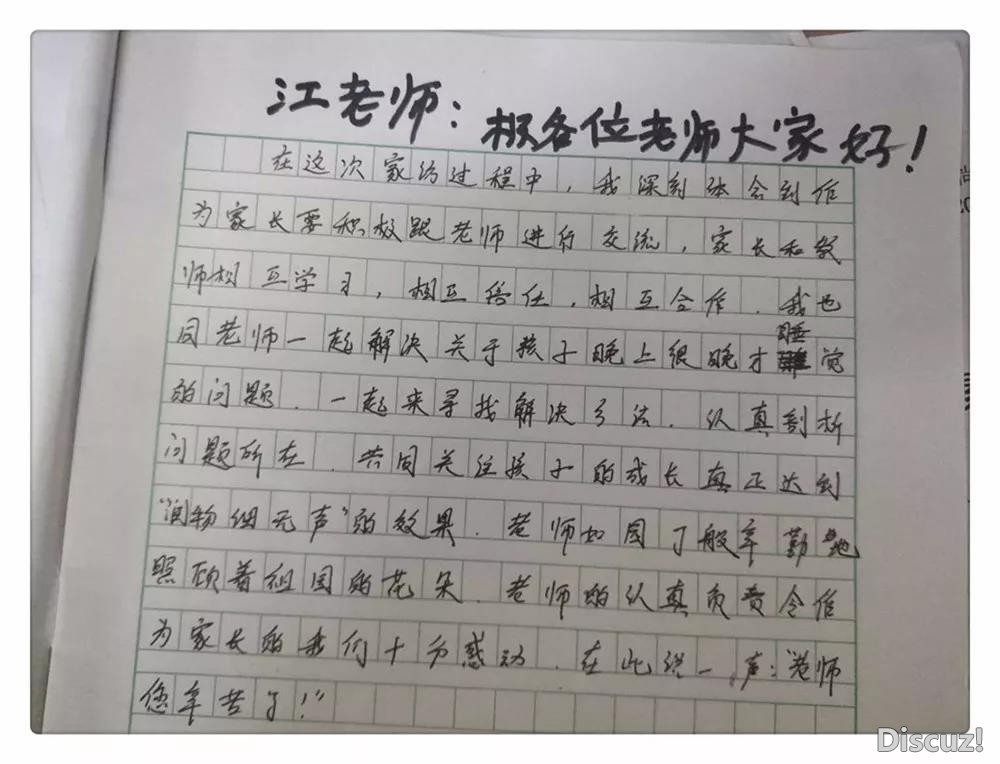 江老师：
极各位老师大家好！
在这次家访过程中，我深刻体会到作
为家长要积极跟老师进行交流，家长和教
师相互学习，相互信任，相互合作．我也
同老师一起解决关于孩子晚上很晚才睡觉
的问题．一起来寻找解决方法．认真剖析
问题所在．共同关注孩子的成长真正达到
“润物细无声”的效果．老师如园丁般辛勤地
照顾着祖国的花朵．老师的认真负责令作
为家长的我们十分感动．在此说一声：“老师
您辛苦了！”
Discuz!